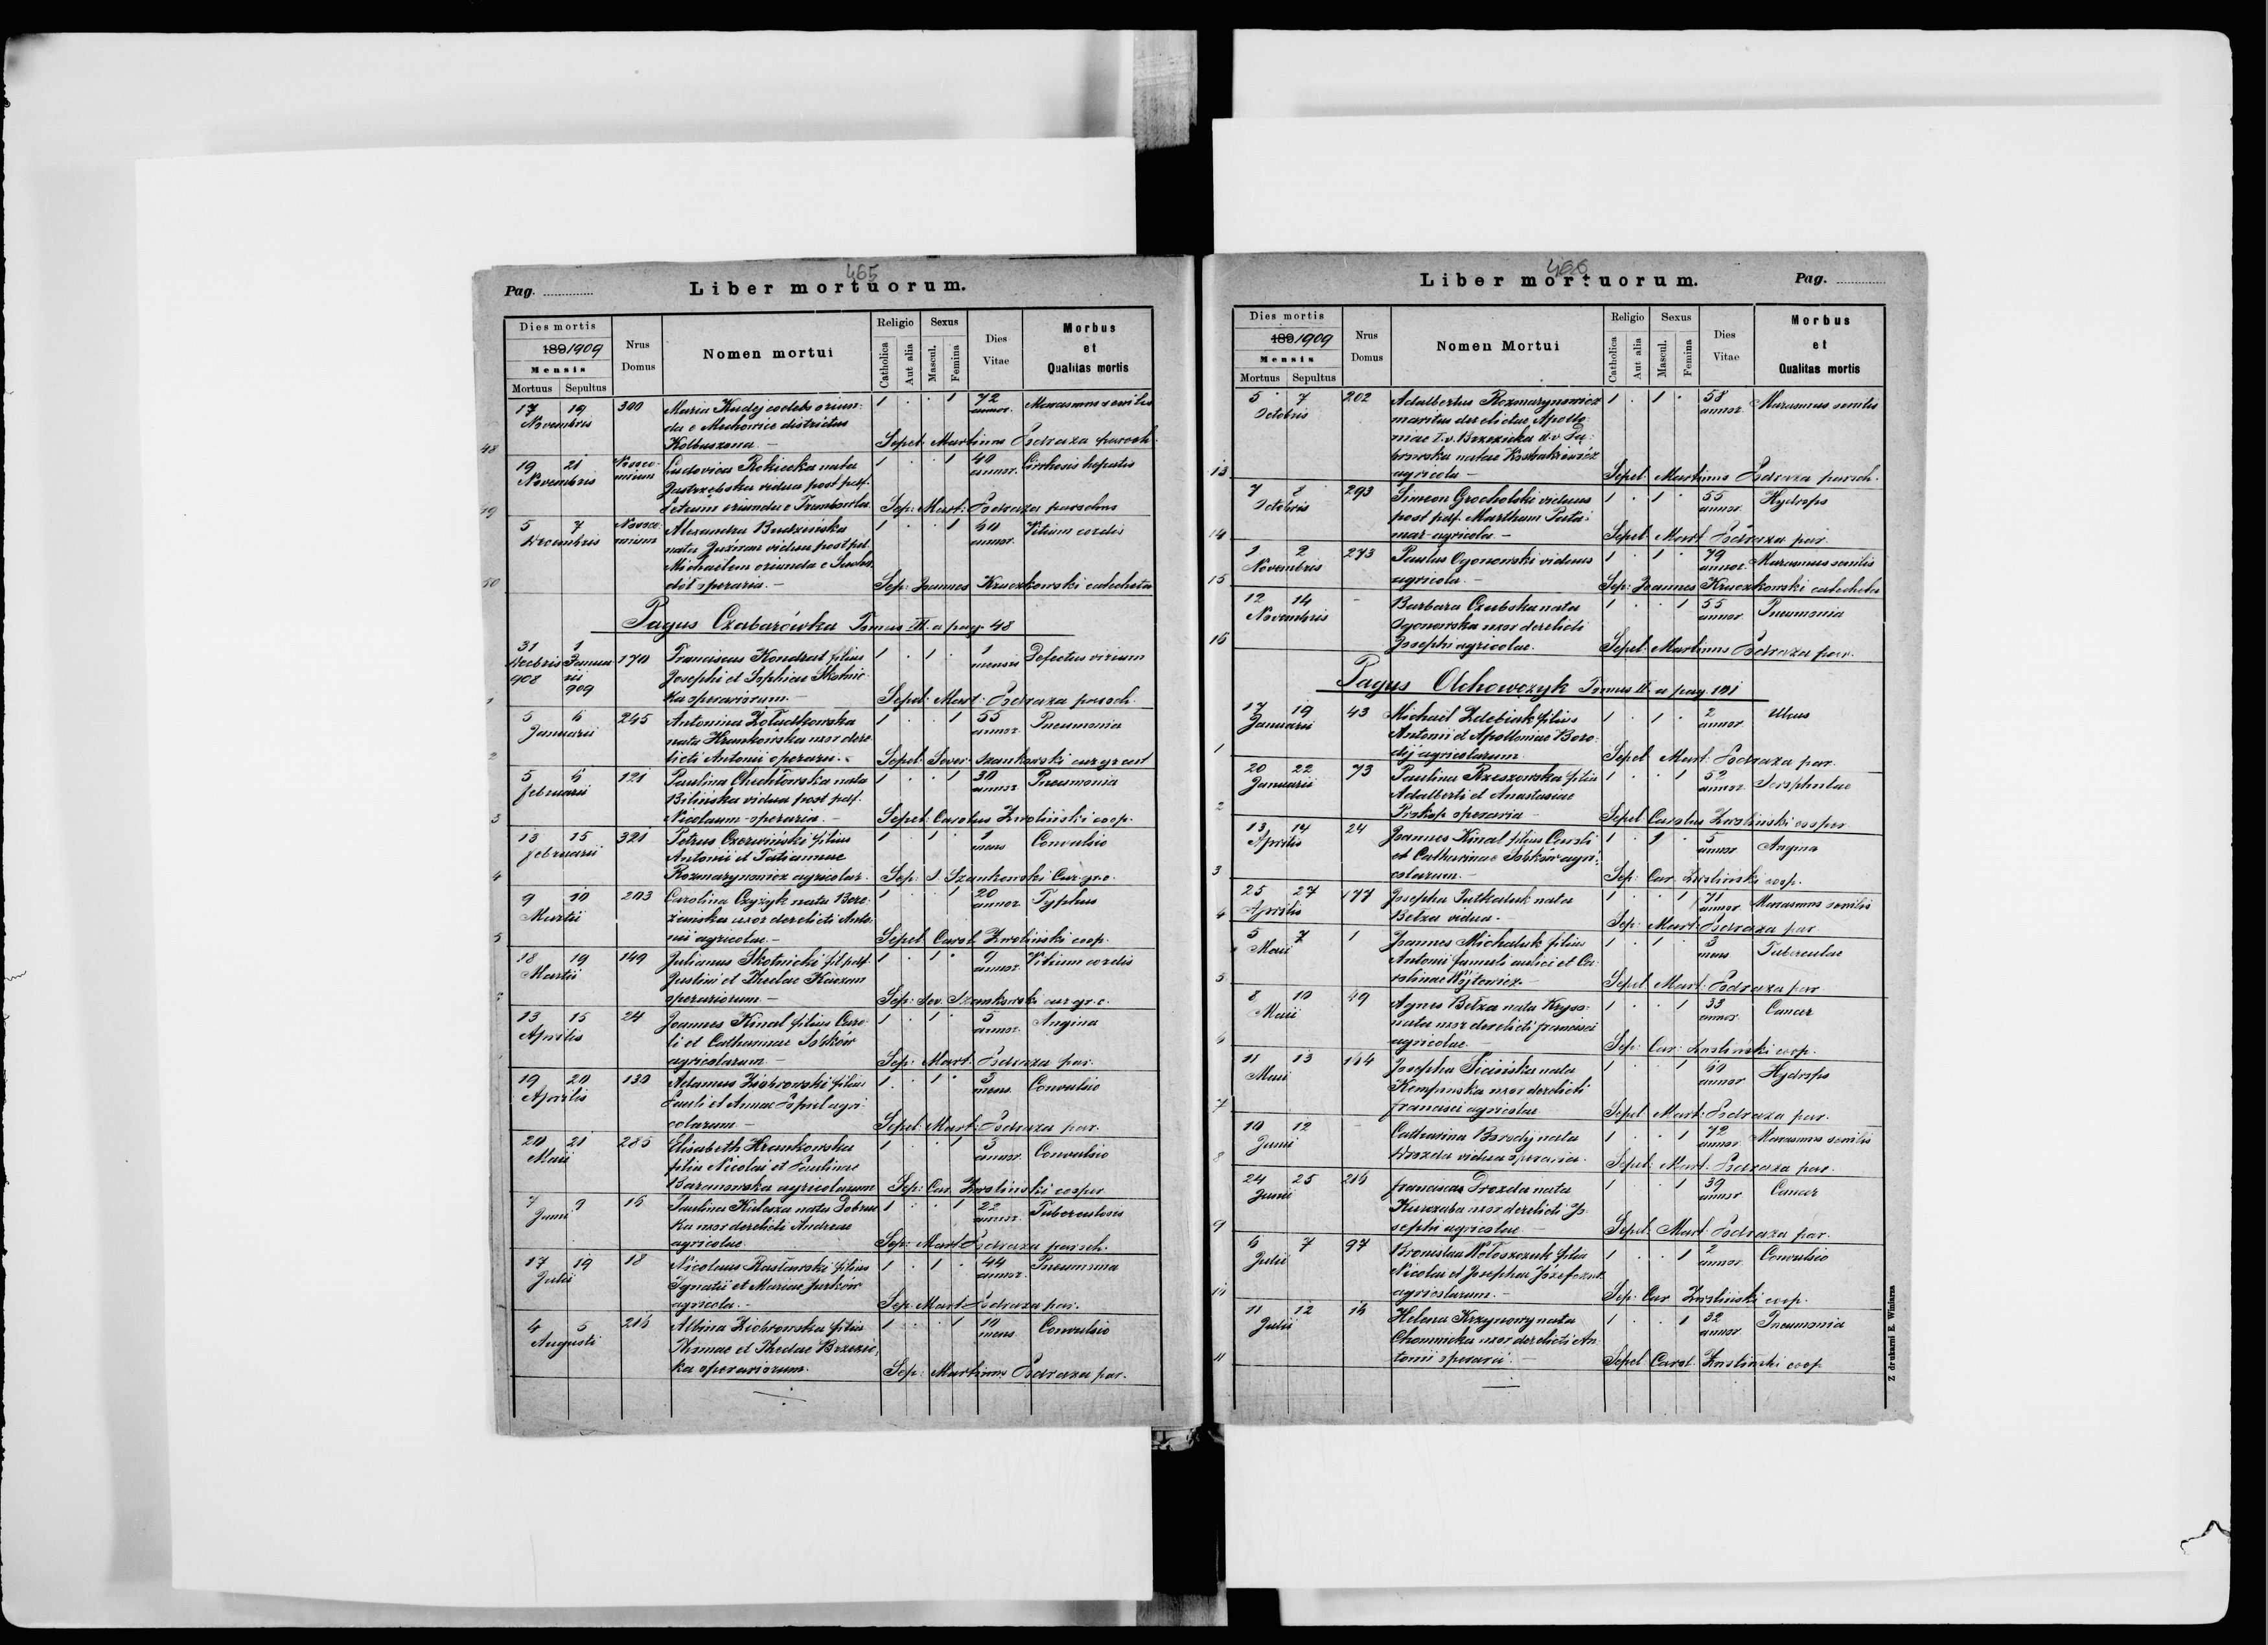 465
Pag.
Liber mortuorum.
Dies mortis
189 1909
Mensis
Mortuus Sepultus
Nrus Domus
Nomen mortui
Religio
Catholica
Aut alia
Sexus
Mascul.
Femina
Dies Vitae
Morbus et Qualitas mortis
17 19 300 Maria Kudej coelebs oriun- 1 . . 1 72 Marasmus senilis
Novembris da e Mechowice districtus annor.
48 Kolbuszowa. — Sepel: Martinus Podraza paroch.
19 21 Nosoco- Ludovica Rokicka nata 1 . . 1 40 Cirrhosis hepatis
Novembris mium Jastrzębska vidua post pdf. annor.
49 Petrum oriunda e Trembowla. Sep: Mart: Podraza parochus
5 7 Nosoco- Alexandra Budzińska 1 . . 1 60 Vitium cordis
Decembris mium nata vidua post pdf. annor.
Michaelem oriunda e
50 operaria. — Sep: Joannes Kruczkowski catecheta
Pagus Czabarówka Tomus III. a pag. 48
31 1 170 Franciscus Kondrat filius 1 . 1 . 1 Defectus virium
Decbris Janua- Josephi et Sophiae Skotnic- mensis
908 rii 909
1 ka operariorum. — Sepel: Mart: Podraza paroch.
5 6 245 Antonina Żołudkowska 1 . . 1 55 Pneumonia
Januarii nata Hrankowska uxor dere- annor.
2 licti Antonii operarii. Sepel: Sever. Szankowski cur gr cat
5 6 121 Paulina Chichłowska nata 1 . . 1 30 Pneumonia
februarii Bilińska vidua post pdf. annor.
3 Nicolaum operaria. — Sepel: Carolus Zwoliński coop.
13 15 321 Petrus Czerwiński filius 1 . 1 . 1 Convulsio
februarii Antonii et Tatiannae mens
4 Rozmarynowicz agricolar. Sep: S Szankowski Cur. gr. c.
9 10 203 Carolina Czyżyk nata Bere- 1 . . 1 20 Typhus
Martii żańska uxor derelicti Anto- annor.
5 nii agricolae — Sepel Carol. Zwoliński coop.
18 19 149 Julianus Skotnicki fil pdf. 1 . 1 . 9 Vitium cordis
Martii Justini et Theclae annor.
operariorum — Sep: Sev. Szankowski cur gr. c.
13 15 24 Joannes Kinal filius Caro- 1 . 1 . 5 Angina
Aprilis li et Catharinae Sobków annor.
agricolarum — Sep: Mart: Podraza par.
19 20 130 Adamus Ziobrowski filius 1 . 1 . 3 Convulsio
Aprilis Pauli et Annae agri- mens.
colarum — Sepel: Mart: Podraza par.
20 21 285 Elisabeth Hrankowska 1 . . 1 3 Convulsio
Maii filia Nicolai et Paulinae annor.
Baranowska agricolarum Sep: Car Zwoliński cooper
7 9 15 Paulina Kulesza nata 1 . . 1 22 Tuberculosis
Junii uxor derelicti Andreae annor.
agricolae. Sep: Mart Podraza paroch.
17 19 18 Nicolaus filius 1 . 1 . 44 Pneumonia
Julii Ignatii et Mariae Jurków annor.
agricola. — Sep. Mart Podraza par.
4 5 216 Albina Ziobrowska filia 1 . . 1 10 Convulsio
Augusti Thomae et Theclae Brzezic- mens.
ka operariorum. Sep: Martinus Podraza par.
466
Liber mortuorum.
Pag.
Dies mortis
189 1909
Mensis
Mortuus Sepultus
Nrus Domus
Nomen Mortui
Religio
Catholica
Aut alia
Sexus
Mascul.
Femina
Dies Vitae
Morbus et Qualitas mortis
5 7 202 Adalbertus Rozmarynowicz 1 . 1 . 58 Marasmus senilis
Octobris maritus derelictae Apollo- annor.
niae I. v. Brzezicka II. v
natae
13 agricola — Sepel: Martinus Podraza paroch.
7 8 293 Simeon Grocholski viduus 1 . 1 . 55 Hydrops
Octobris post pdf. Martham annor.
14 agricola — Sepel: Mart Podraza par.
1 2 273 Paulus Ogonowski viduus 1 . 1 . 79 Marasmus senilis
Novembris annor.
15 agricola. — Sep: Joannes Kruczkowski catecheta
12 14 - Barbara Czubska nata 1 . . 1 55 Pneumonia
Novembris Ogonowska uxor derelicti annor.
16 Josephi agricolae. Sepel: Martinus Podraza par.
Pagus Olchowczyk Tomus II. a pag 101
17 19 43 Michael Zdebiak filius 1 . 1 . 2 Ulcus
Januarii Antonii et Apolloniae Boro- annor.
1 dij agricolarum. Sepel Mart: Podraza par.
20 22 73 Paulina Rzeszowska filia 1 . . 1 52 Scrophulae
Januarii Adalberti et Anastasiae annor.
2 Prokop operaria — Sepel Carolus Zwoliński cooper
13 14 24 Joannes Kinal filius Caroli 1 . 1 . 5 Angina
Aprilis et Catharinae Sobków agri- annor
3 colarum. — Sep: Car. Zwoliński coop.
25 27 177 Josepha Tutkaluk nata 1 . . 1 71 Marasmus senilis
Aprilis annor.
4 Bełza vidua. — Sep: Mart: Podraza par
5 7 1 Joannes Michaluk filius 1 . 1 . 3 Tuberculae
Maii Antonii famuli aulici et Ca- mens
5 rolinae Wójtowicz — Sepel Mart: Podraza par
8 10 49 Agnes Bełza nata 1 . . 1 33 Cancer
Maii uxor derelicti francisci annor.
6 agricolae — Sep: Car: Zwoliński coop.
11 13 144 Josepha Sicińska nata 1 . . 1 60 Hydrops
Maii Kempinska uxor derelicti annor
7 francisci agricolae Sepel Mart: Podraza par.
10 12 - Catharina Borodij nata 1 . . 1 72 Marasmus senilis
Junii annor.
8 Drozda vidua operaria. Sepel: Mart: Podraza par.
24 25 216 francisca Drozda nata 1 . . 1 39 Cancer
Junii Kurczaba uxor derelicti Jo- annor
9 sephi agricolae — Sepel: Mart Podraza par.
6 7 97 Bronislava Wołoszczuk filia 1 . . 1 2 Convulsio
Julii Nicolai et Josephae Józefczuk annor.
10 agricolarum. — Sep: Car Zwoliński coop.
11 12 16 Helena Krzynowy nata 1 . . 1 32 Pneumonia
Julii Chomnicka uxor derelicti An- annor.
11 tonii operarii. — Sepel Carol. Zwoliński coop
Z drukarni E. Winiarza